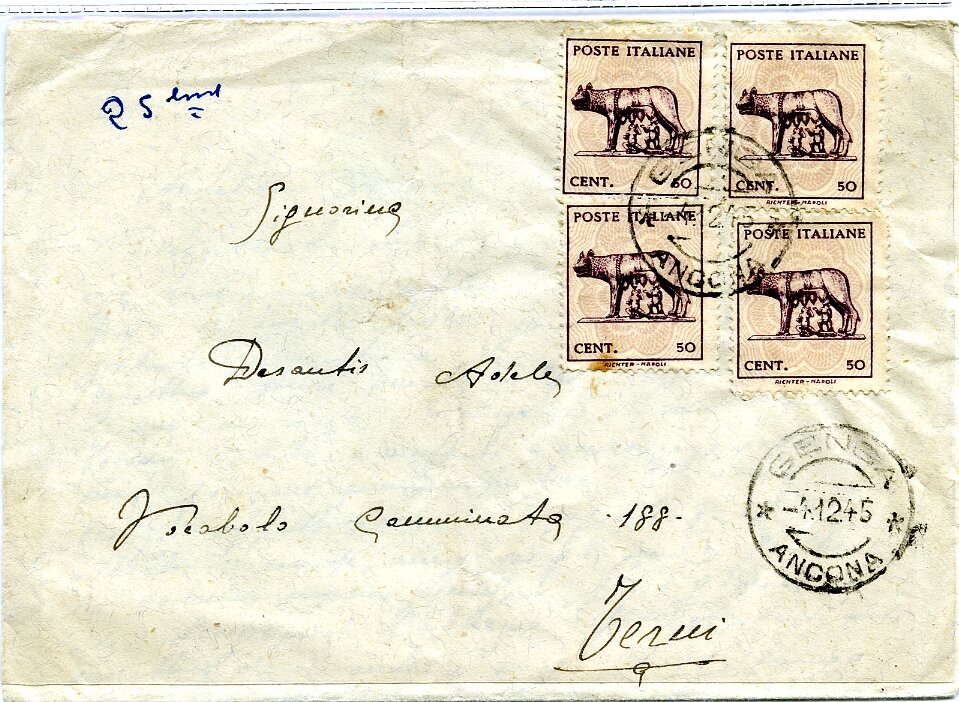 POSTE ITALIANE
CENT. 50
POSTE ITALIANE
CENT. 50
RICHTER-NAPOLI
POSTE ITALIANE
CENT. 50
RICHTER-NAPOLI
POSTE ITALIANE
CENT. 50
RICHTER-NAPOLI
GENGA
4.12.45
ANCONA
Signorina
Desantis Adele
Vocabolo Camminata 188.
Terni
GENGA
4.12.45
ANCONA